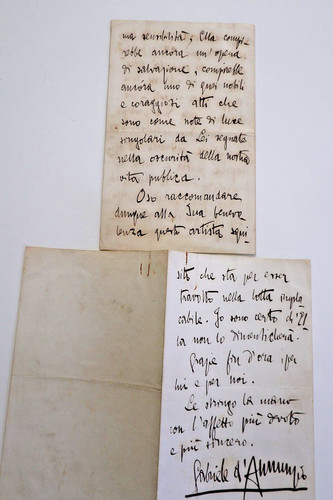 ma sensibilità, Ella compi-
rebbe ancora un'opera
di salvazione, compirebbe
ancóra uno di quei nobili
e coraggiosi atti che
sono come note di luce
singolari da Lei segnate
nella oscurità della nostra
vita publica.
Oso raccomandare
dunque alla Sua benevo-
lenza questo artista squi-
sito che sta per esser
travolto nella lotta impla-
cabile. Io sono certo ch'El-
la non lo dimenticherà.
Grazie fin d'ora per
lui e per noi.
Le stringo la mano
con l'affetto più devoto
e più sincero.
Gabriele d'Annunzio